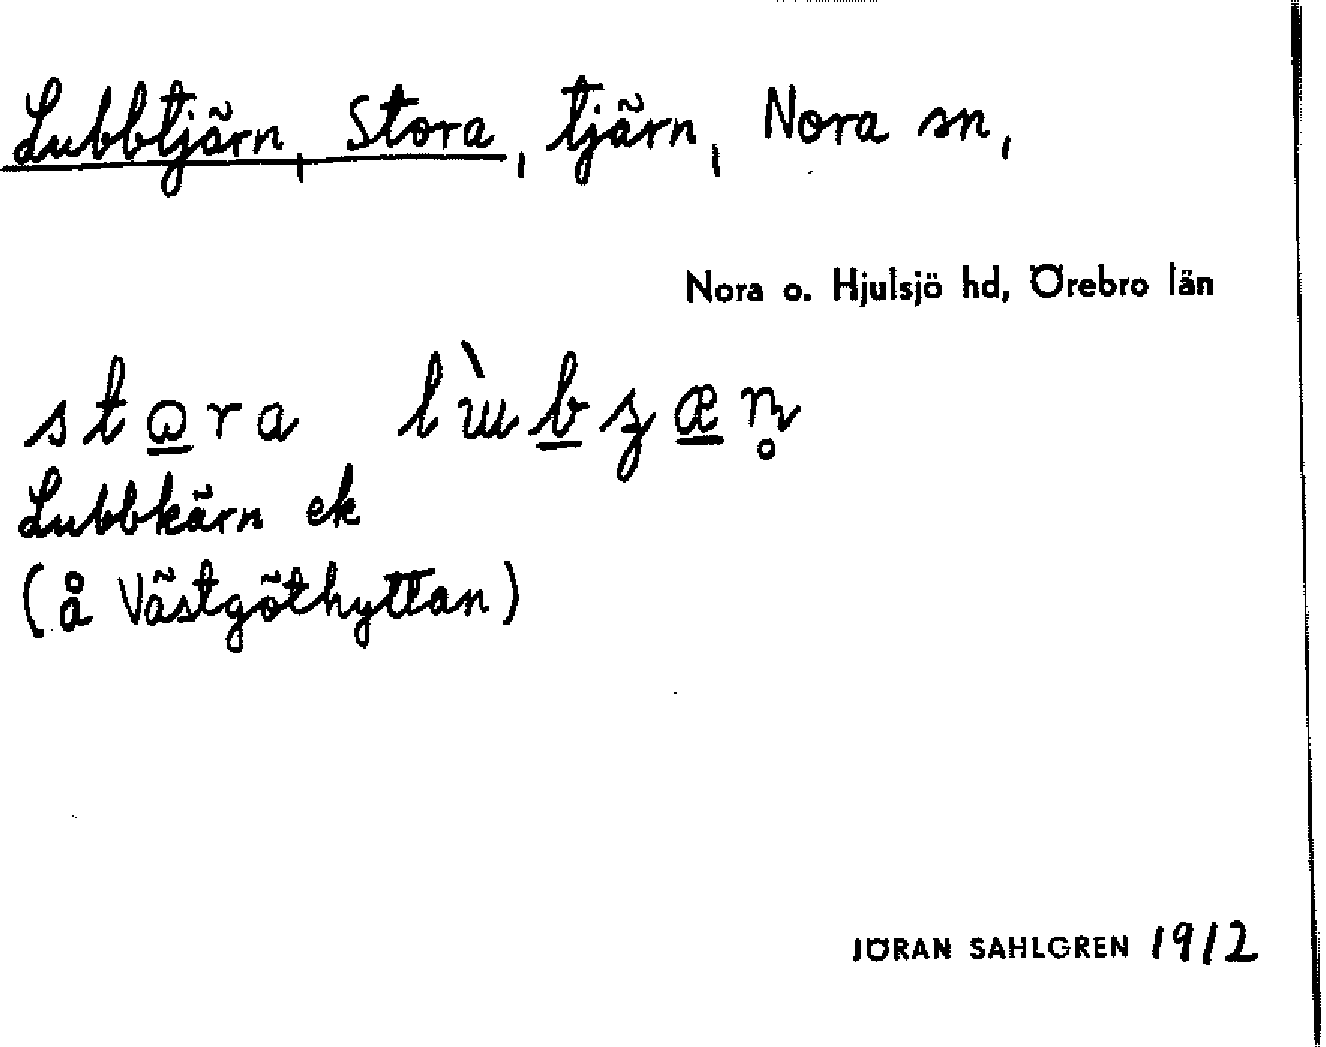 Lubbtjärn, Stora, tjärn, Nora sn,
Nora o. Hjulsjö hd, Örebro län
stora
Lubbkärn ek
(å Västgöthyttan)
JÖRAN SAHLGREN 1912